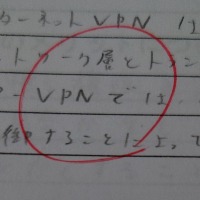 ーネットVPNは
トワーク層とトラン
ーVPNでは、
することによって